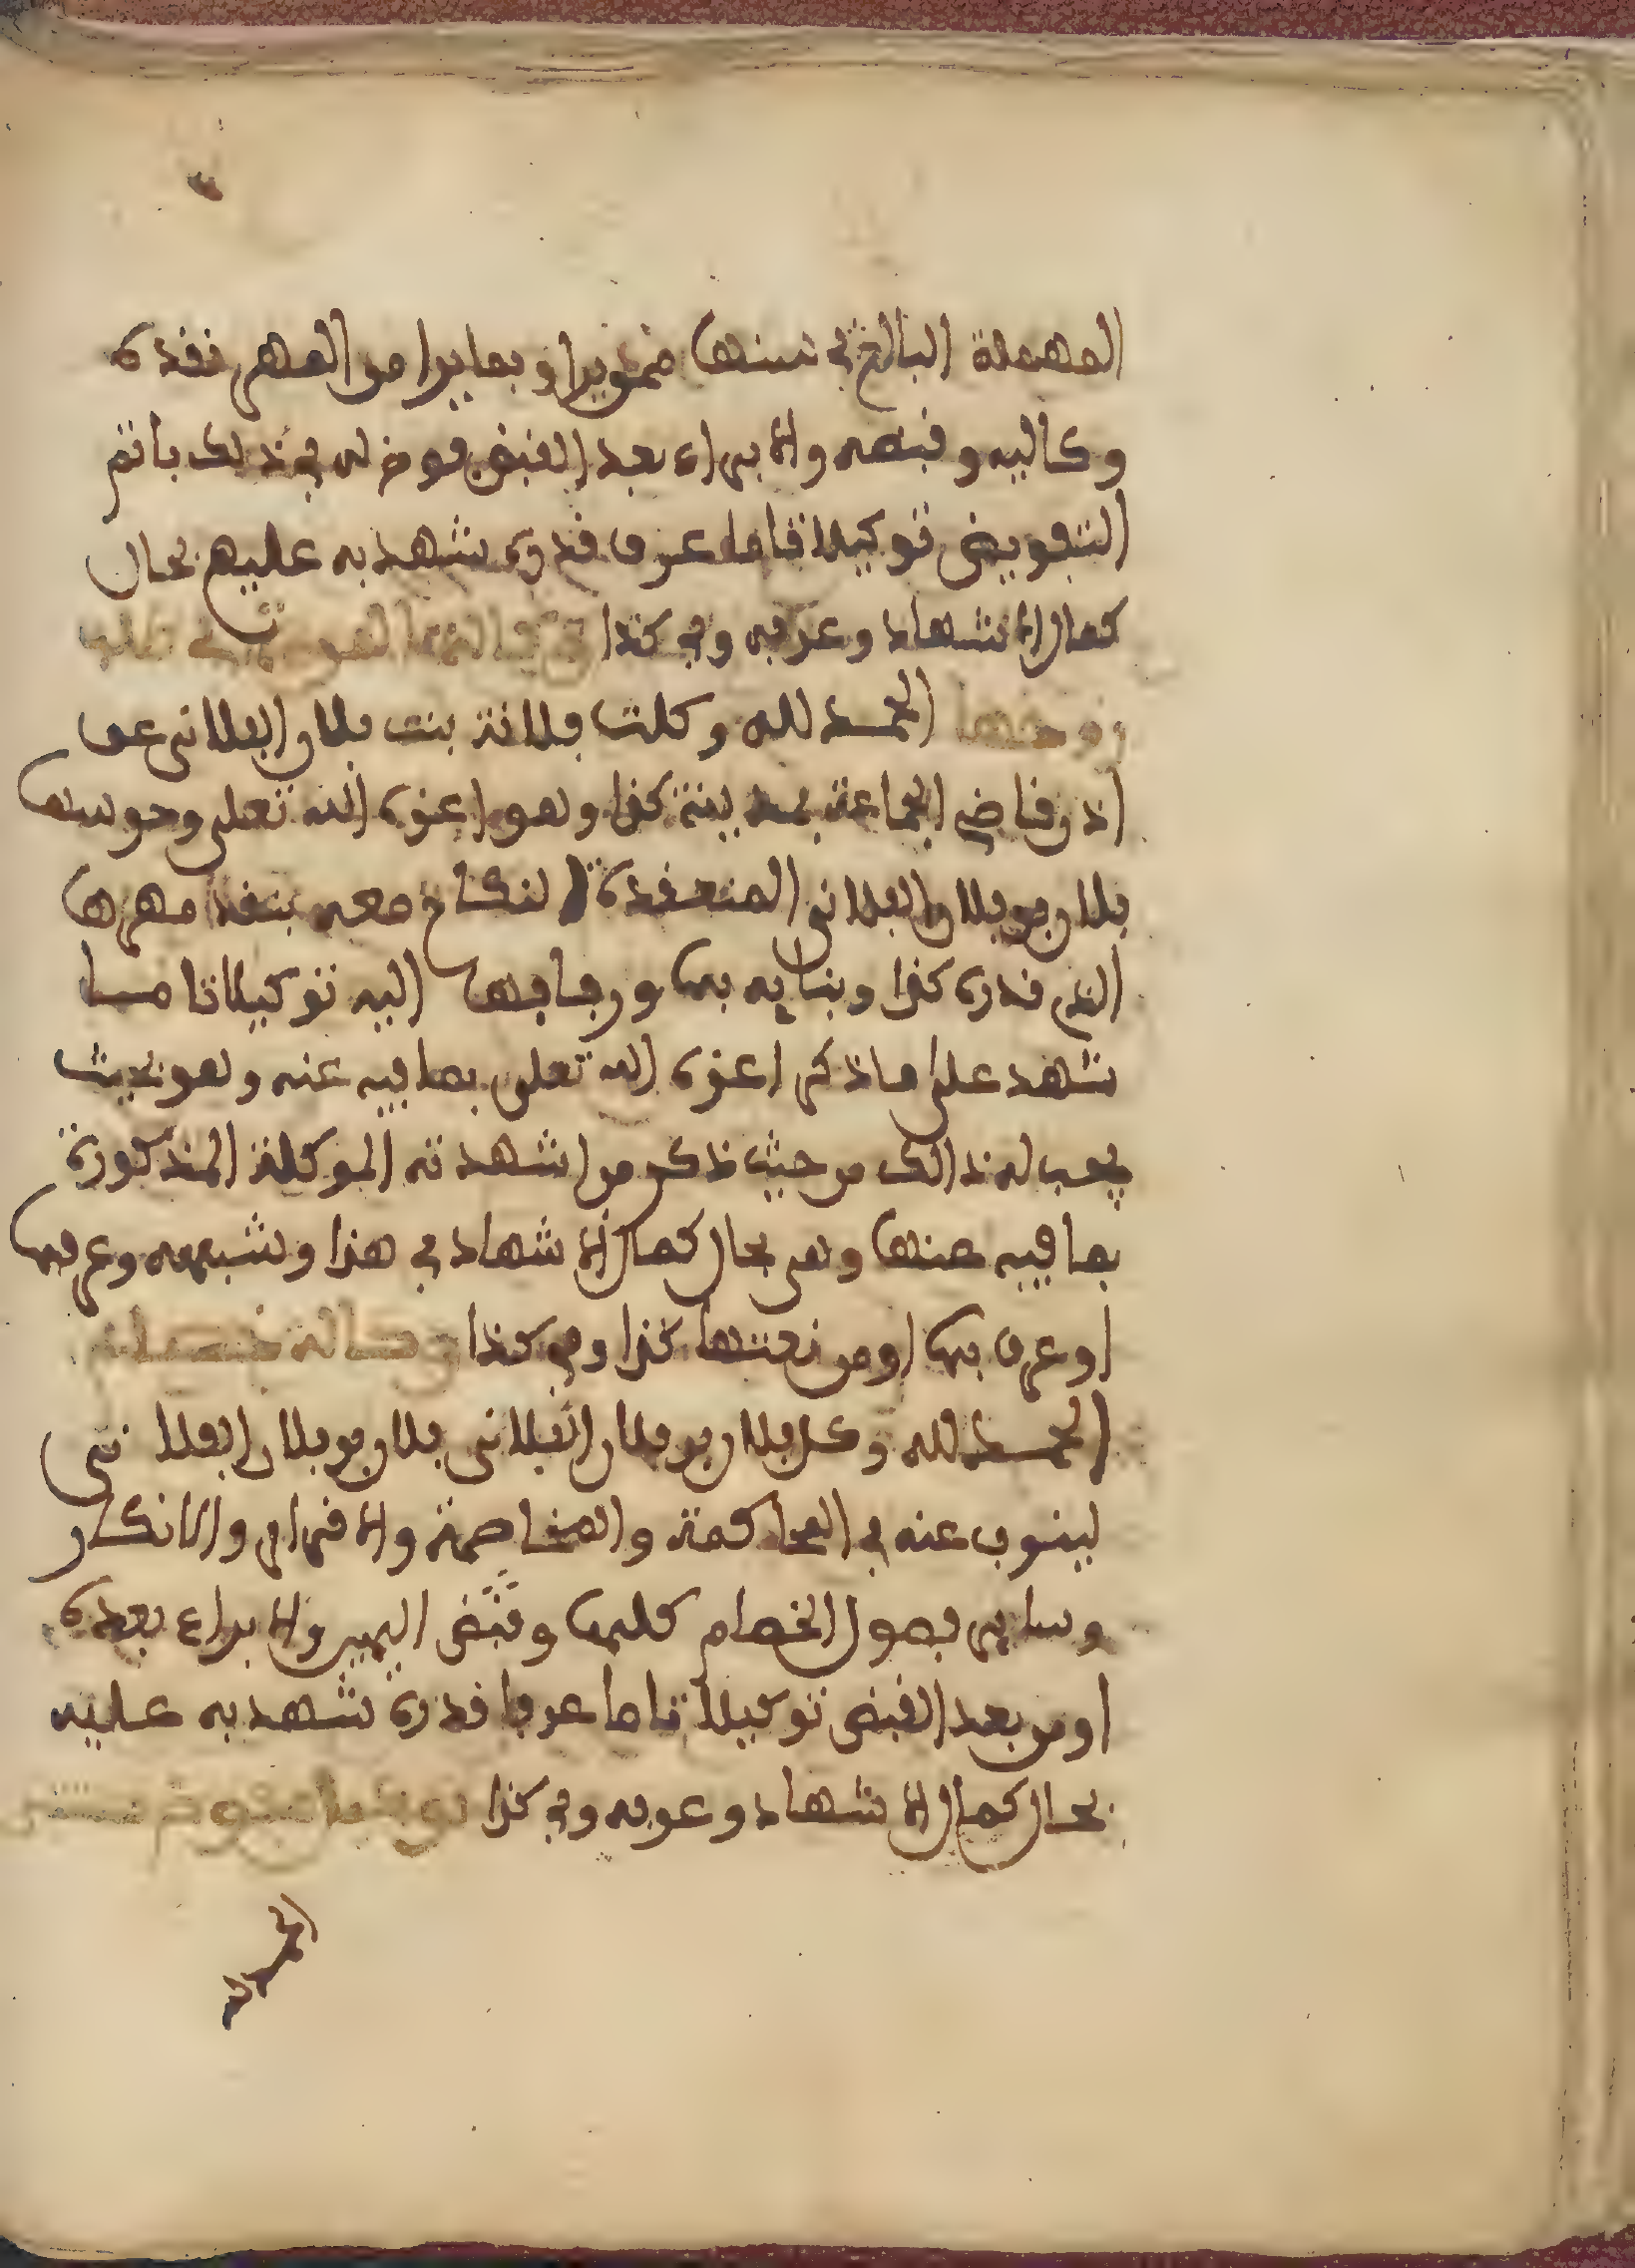 المهملة البالغ في سنها ممن يرا وبما يرا من المهر نقده
وكاليه وقبضه والابراء بعد القبض فوض له في ذلك باتم
التفويض توكيلا تاما عرف قدره شهد به عليهم بحال
كمال الاشهاد وعرفه وفي كذا
زوجها الحمد لله وكلت فلانة بنت فلان الفلاني عن
اذن قاضي الجماعة بمدينة كذا وهو اعزه الله تعلى وحرسها
فلان بن فلان الفلاني المنعقدة النكاح معه بنقد مهرها
الذي قدره كذا وبنايه بها وزفافها اليه توكيلا تاما
شهد على ما ذكر اعزه الله تعلى بما فيه عنه وهو بحيث
يجب له ذالك من حيث ذكر من اشهدته الموكلة المذكورة
بما فيه عنها وهي بحال كمال الاشهاد في هذا وشبهه وعرفها
او عرف بها او من نعتها كذا وفي كذا وكالة خصام
الحمد لله وكل فلان بن فلان الفلاني فلان بن فلان الفلاني
لينوب عنه في المحاكمة والمخاصمة والاقرار والانكار
وساير فصول الخصام كلها وقبض اليمين والابراء بعده
او من بعد القبض توكيلا تاما عرفا قدره شهد به عليه
بحال كمال الاشهاد وعرفه وفي كذا
الحمد